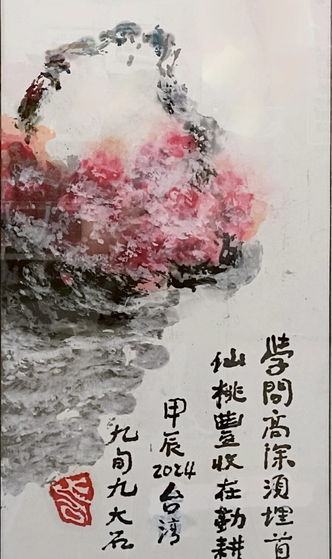 學問高深須埋首
仙桃豐收在勤耕
甲辰2024台灣
九旬九大石